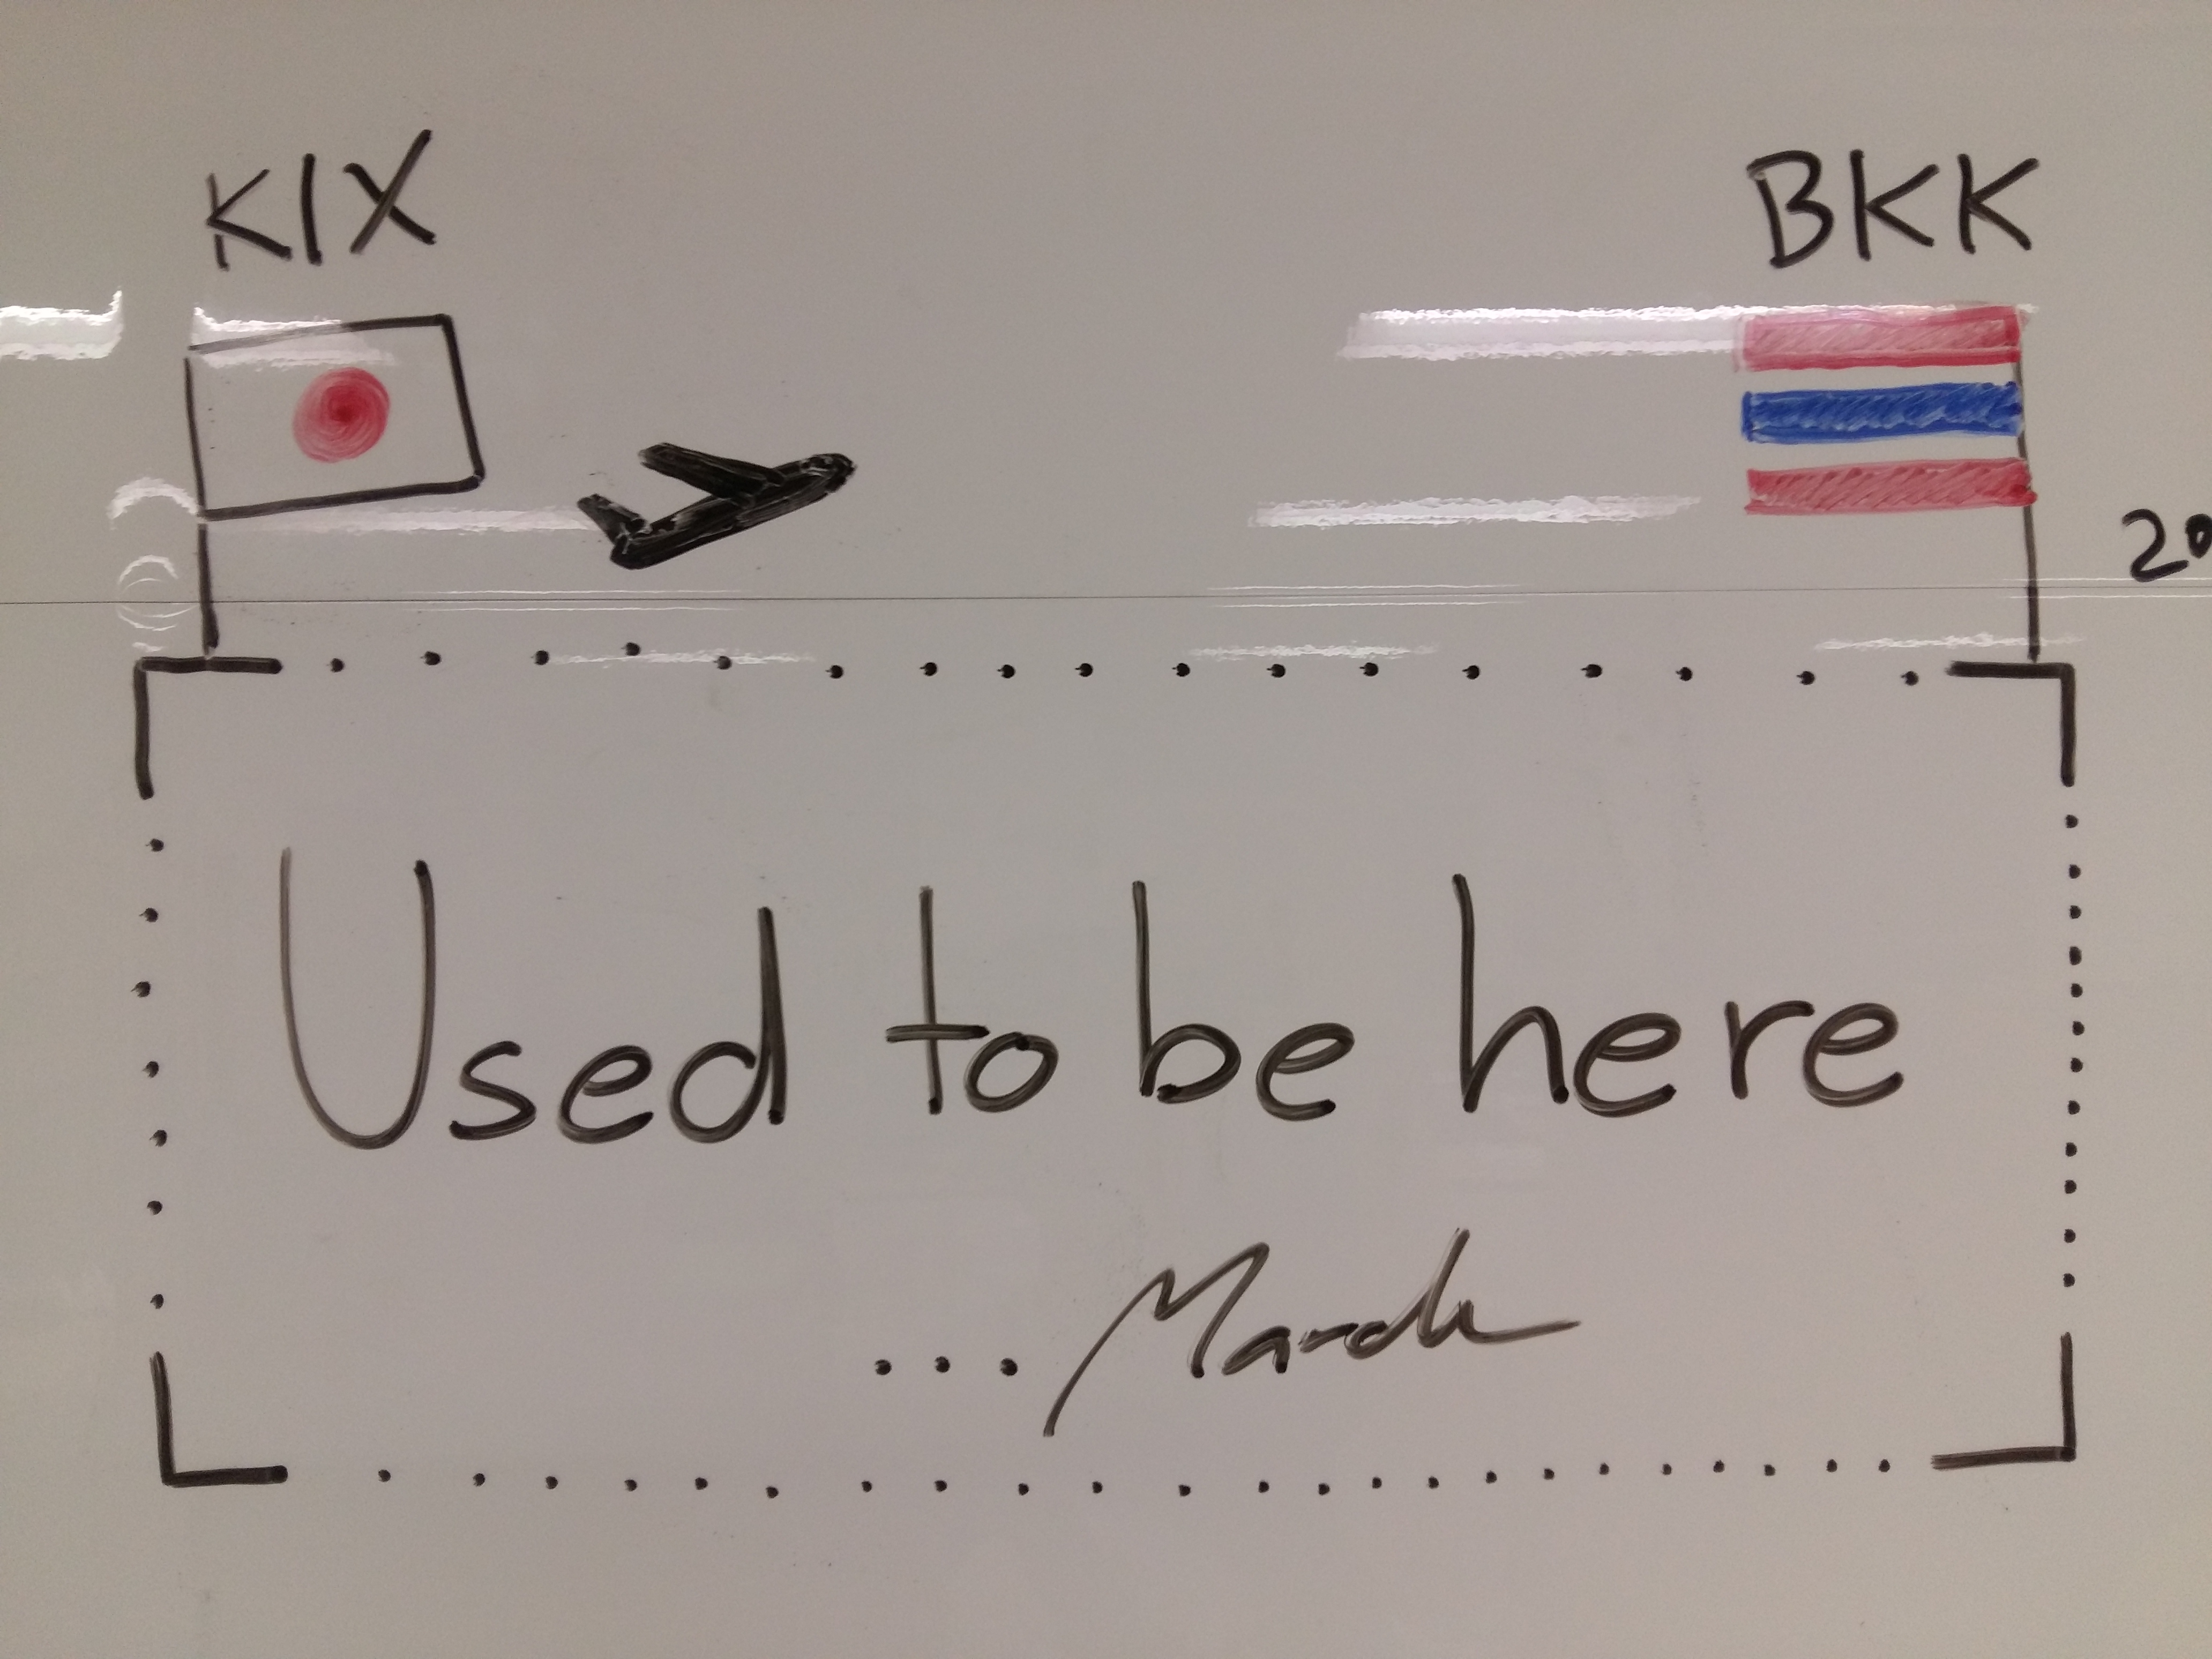 KIX BKK
20
Used to be here
... March